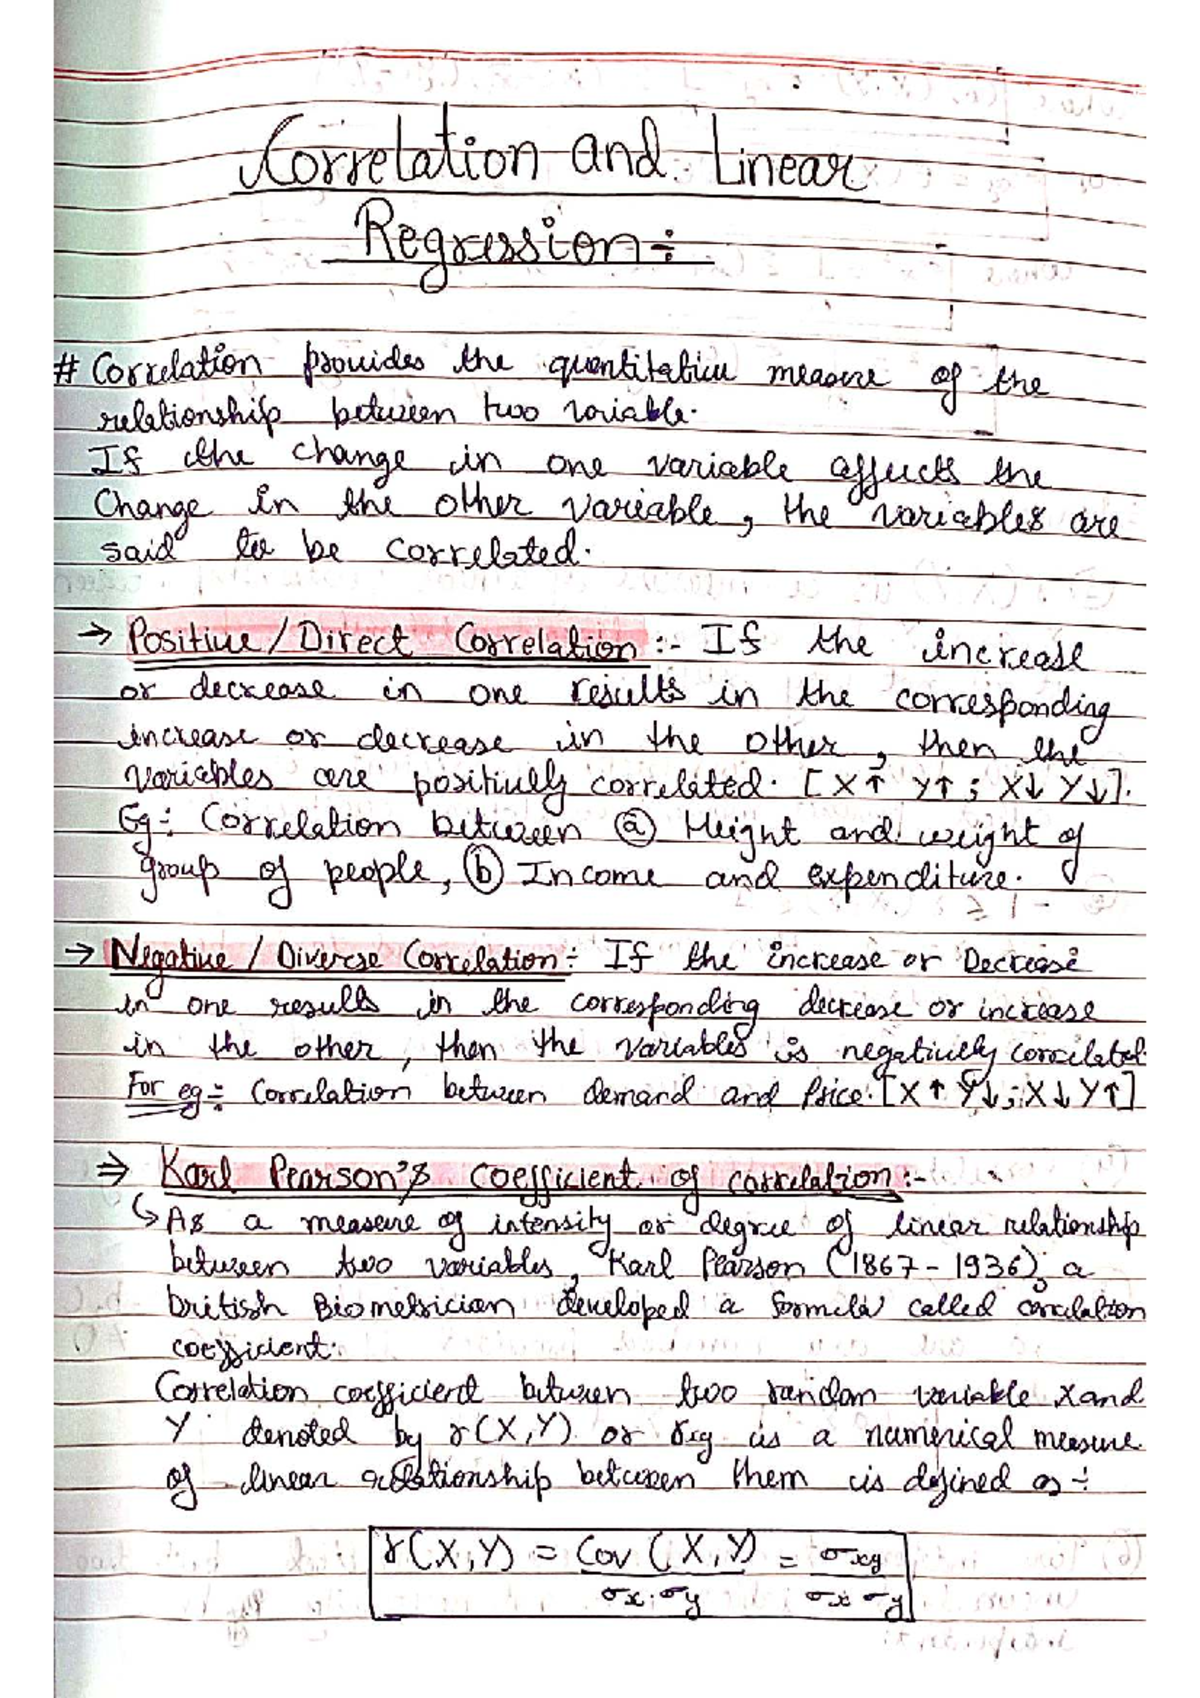 Correlation and Linear
Regression÷
# Correlation provides the quantitative measure of the
relationship between two variable.
If the change in one variable affects the
Change in the other variable, the variables are
said to be correlated.
→ Positive/Direct Correlation :- If the increase
or decrease in one results in the corresponding
increase or decrease in the other, then the
variables are positively correlated. [X↑ Y↑ ; X↓ Y↓].
Eg÷ Correlation between ⓐ Height and weight of
group of people, ⓑ Income and expenditure.
→ Negative / Diverse Correlation÷ If the increase or Decrease
in one results in the corresponding decrease or increase
in the other, then the variables is negatively correlated.
For eg÷ Correlation between demand and Price. [X↑ Y↓ ; X↓ Y↑]
⇒ Karl Pearson's coefficient of correlation :-
↳ As a measure of intensity or degree of linear relationship
between two variables, Karl Pearson (1867-1936), a
british Biometrician developed a formula called correlation
coefficient.
Correlation coefficient between two random variable X and
Y denoted by r(X,Y) or rxy is a numerical measure
of linear relationship between them is defined as ÷
r(X,Y) = Cov (X,Y) / σx.σy = σxy / σx σy